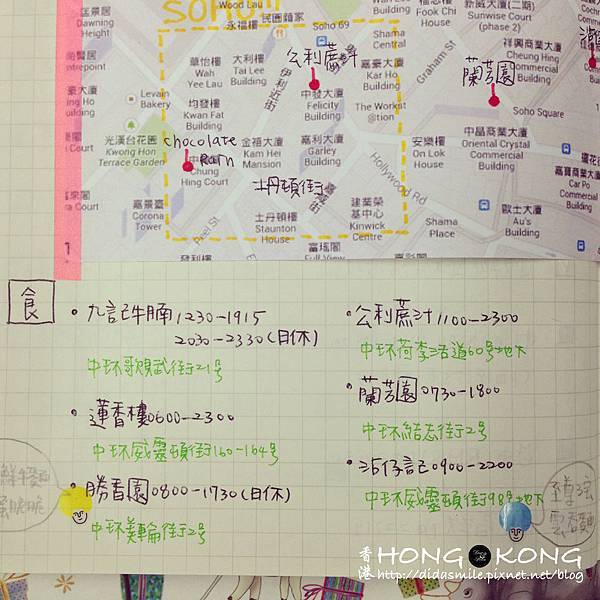 SOHO
Wood Lau
永福樓
民園麵家
Soho 69
Shama
Central
Fook Chi
House
新威大廈(二期)
Sunwise Court
(phase 2)
Dawning
Height
華怡樓
Wah
Yee Lau
大利樓
Tai Lee
Building
公利蔗汁
伊利近街
嘉豪大廈
Kar Ho
Building
Graham St
祥興商業大廈
Cheung Hing
Commercial
Building
蘭芳園
Levain
Bakery
均發樓
Kwan Fat
Building
中發大廈
Felicity
Building
The Workst
@tion
Soho Square
光漢台花園
Kwong Hon
Terrace Garden
chocolate
rain
Chung
Hing Court
金禧大廈
Kam Hei
Mansion
嘉利大廈
Garley
Building
Hollywood Rd
安樂樓
On Lok
House
中晶商業大廈
Oriental Crystal
Commercial
Building
嘉寶商業大廈
Car Po
Commercial
Building
士丹頓街
嘉景臺
Corona
Tower
Peel St
士丹頓樓
Staunton
House
建業榮
基中心
Kinwick
Centre
Shama
Place
歐士大廈
Au's
Building
發利樓
富瑤閣
Full View
食
•九記牛腩1230-1915
2030-2330(日休)
中环歌賦街21号
•蓮香樓0600-2300
中环威靈頓街160-164号
•勝香園0800-1730(日休)
中环美輪街2号
•公利蔗汁1100-2300
中环荷李活道60号地下
•蘭芳園0730-1800
中环結志街2号
•沾仔記0900-2200
中环威靈頓街98号地下
香港HONG KONG
http://didasmile.pixnet.net/blog